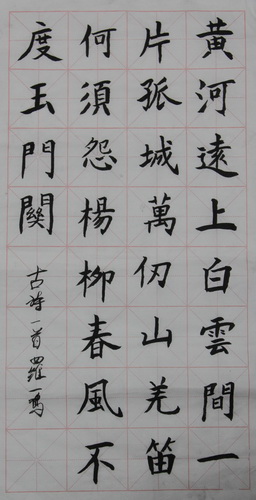 黃河遠上白雲間一
片孤城萬仞山羌笛
何須怨楊柳春風不
度玉門關
古詩一首羅一鳴